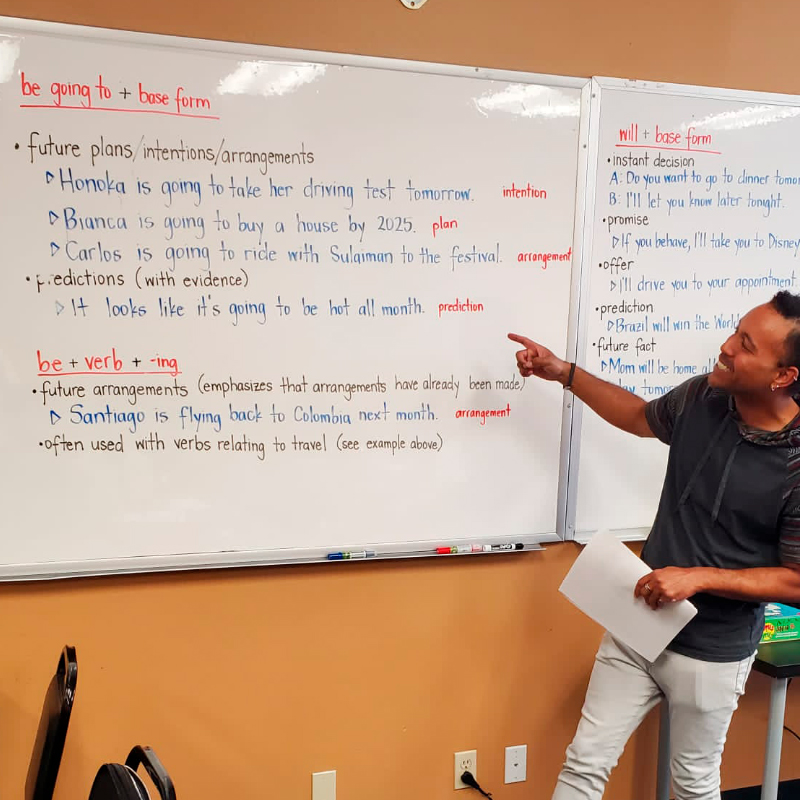 be going to + base form
• future plans/intentions/arrangements
▷ Honoka is going to take her driving test tomorrow. intention
▷ Bianca is going to buy a house by 2025. plan
▷ Carlos is going to ride with Sulaiman to the festival. arrangement
• predictions (with evidence)
▷ It looks like it's going to be hot all month. prediction
be + verb + -ing
• future arrangements (emphasizes that arrangements have already been made)
▷ Santiago is flying back to Colombia next month. arrangement
• often used with verbs relating to travel (see example above)
will + base form
• instant decision
A: Do you want to go to dinner
B: I'll let you know later tonight.
• promise
▷ If you behave, I'll take you to Disney
• offer
▷ I'll drive you to your appointment.
• prediction
▷ Brazil will win the World
• future fact
▷ Mom will be home